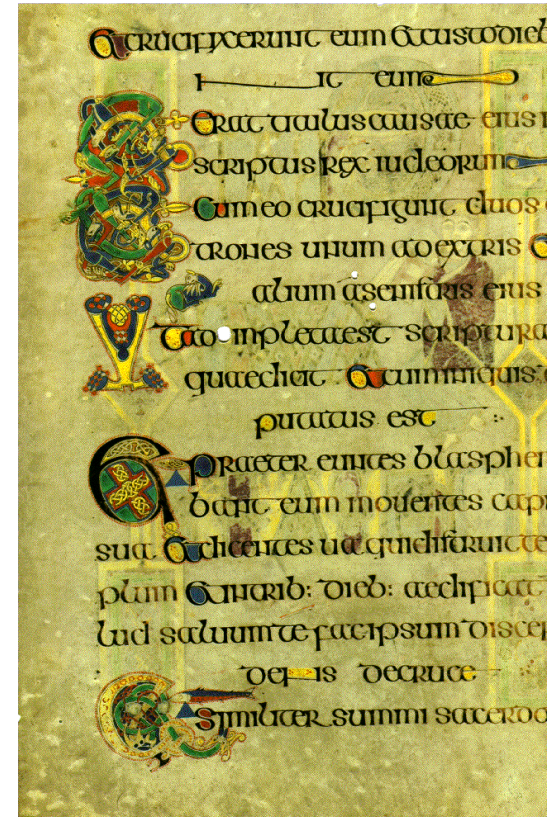 & crucifixerunt eum & custodieb
nt eum
Erat titulus causae eius i
scriptus rex iudeorum
Et cum eo crucifigunt duos
trones unum adextris &
alium asenistris eius
Et adinpletaest scriptura
quaedicit & cuminiquis
putatus est
Et praeter euntes blasphe
bant eum mouentes cap
sua & dicentes ua quidistruit te
plum & intrib: dieb: aedificat
lud saluum te facipsum disce
dens decruce
Similiter summi sacerdo